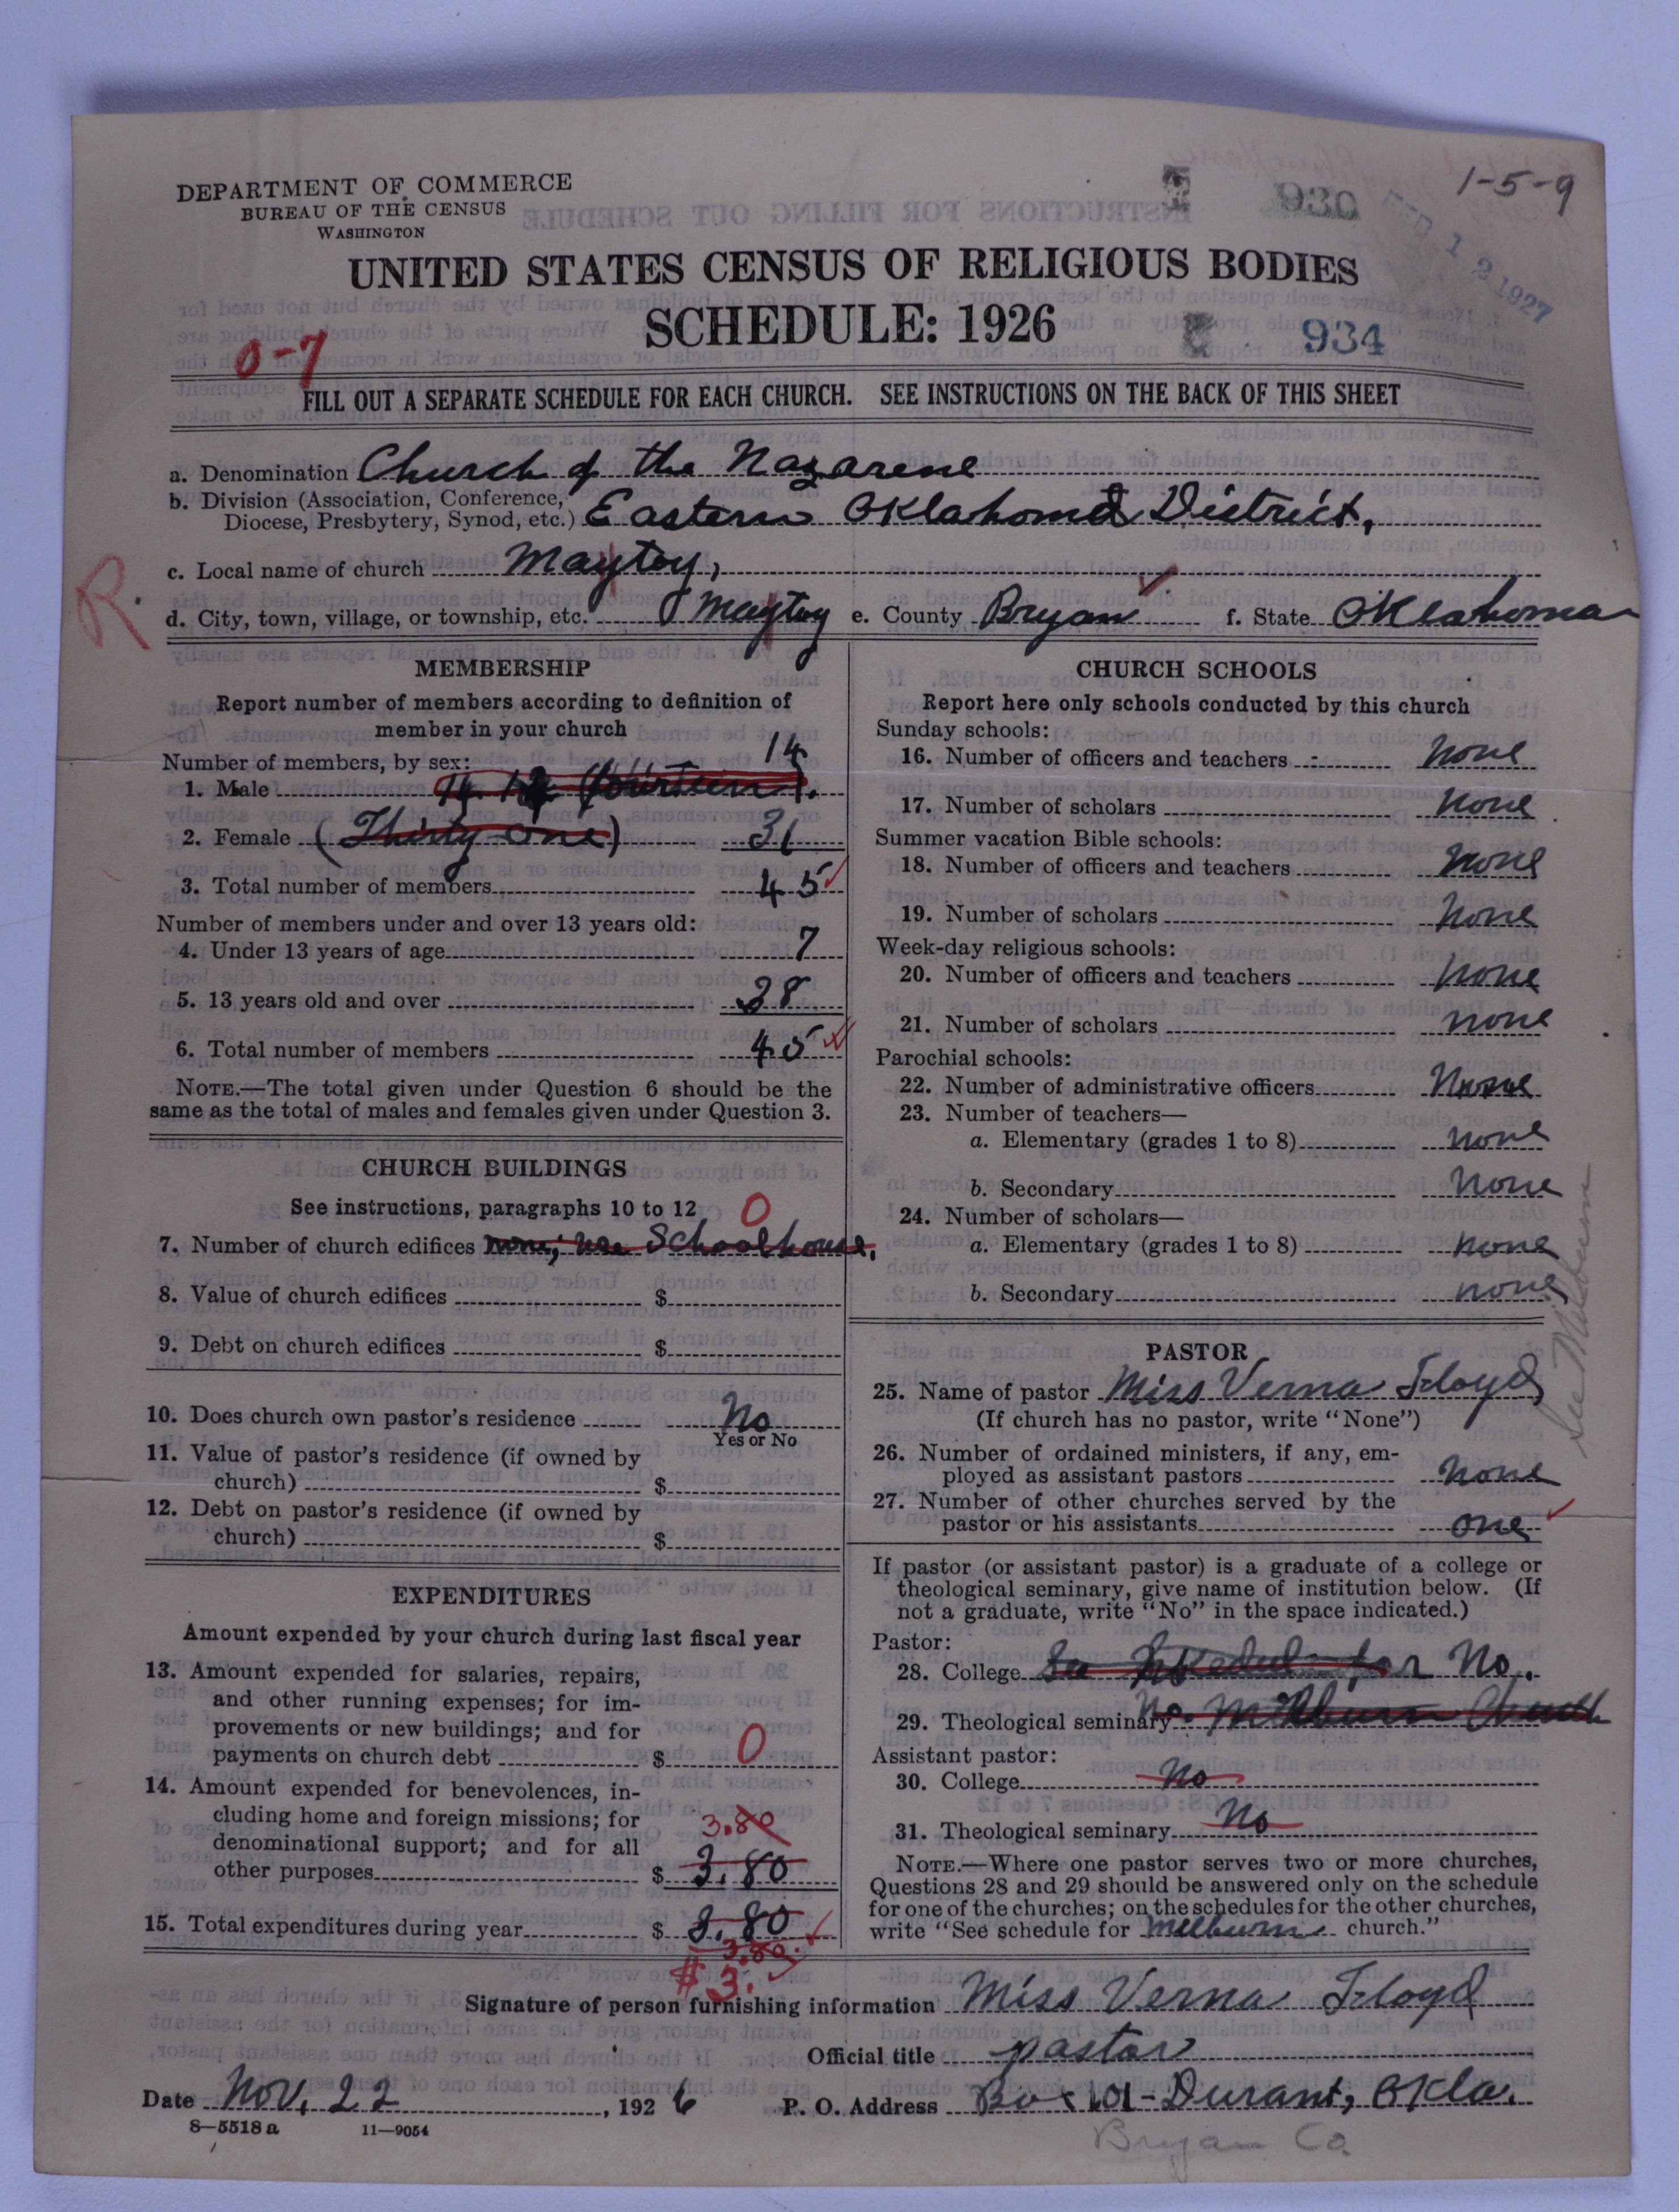 DEPARTMENT OF COMMERCE
BUREAU OF THE CENSUS
WASHINGTON
930
1-5-9
FEB 12 1927
UNITED STATES CENSUS OF RELIGIOUS BODIES
SCHEDULE: 1926
934
0-7
FILL OUT A SEPARATE SCHEDULE FOR EACH CHURCH. SEE INSTRUCTIONS ON THE BACK OF THIS SHEET
a. Denomination Church of the Nazarene
b. Division (Association, Conference, Diocese, Presbytery, Synod, etc.) Eastern Oklahoma District,
c. Local name of church Maytoy,
R.
d. City, town, village, or township, etc. Maytoy e. County Bryan f. State Oklahoma
MEMBERSHIP
Report number of members according to definition of
member in your church
Number of members, by sex:
14
1. Male 14 (fourteen).
2. Female (Thirty-one) 31
3. Total number of members 45
Number of members under and over 13 years old:
4. Under 13 years of age 7
5. 13 years old and over 38
6. Total number of members 45
NOTE.—The total given under Question 6 should be the
same as the total of males and females given under Question 3.
CHURCH BUILDINGS
See instructions, paragraphs 10 to 12 0
7. Number of church edifices none; use Schoolhouse.
8. Value of church edifices $
9. Debt on church edifices $
10. Does church own pastor's residence No
Yes or No
11. Value of pastor's residence (if owned by
church) $
12. Debt on pastor's residence (if owned by
church) $
EXPENDITURES
Amount expended by your church during last fiscal year
13. Amount expended for salaries, repairs,
and other running expenses; for im-
provements or new buildings; and for
payments on church debt $ 0
14. Amount expended for benevolences, in-
cluding home and foreign missions; for
3.80
denominational support; and for all
other purposes $ 3.80
15. Total expenditures during year $ 3.80
3.80
$3.
CHURCH SCHOOLS
Report here only schools conducted by this church
Sunday schools:
16. Number of officers and teachers none
17. Number of scholars none
Summer vacation Bible schools:
18. Number of officers and teachers none
19. Number of scholars none
Week-day religious schools:
20. Number of officers and teachers none
21. Number of scholars none
Parochial schools:
22. Number of administrative officers None
23. Number of teachers—
a. Elementary (grades 1 to 8) none
b. Secondary none
24. Number of scholars—
a. Elementary (grades 1 to 8) none
b. Secondary none
See Milburn
PASTOR
25. Name of pastor Miss Verna Floyd
(If church has no pastor, write "None")
26. Number of ordained ministers, if any, em-
ployed as assistant pastors none
27. Number of other churches served by the
pastor or his assistants one
If pastor (or assistant pastor) is a graduate of a college or
theological seminary, give name of institution below. (If
not a graduate, write "No" in the space indicated.)
Pastor:
28. College See Schedule for No.
29. Theological seminary No. Milburn Church
Assistant pastor:
30. College No
31. Theological seminary No
NOTE.—Where one pastor serves two or more churches,
Questions 28 and 29 should be answered only on the schedule
for one of the churches; on the schedules for the other churches,
write "See schedule for Milburn church."
Signature of person furnishing information Miss Verna Floyd
Official title pastor
Date Nov. 22, 1926 P. O. Address Box 101-Durant, Okla.
8—5518a 11—9054
Bryan Co.